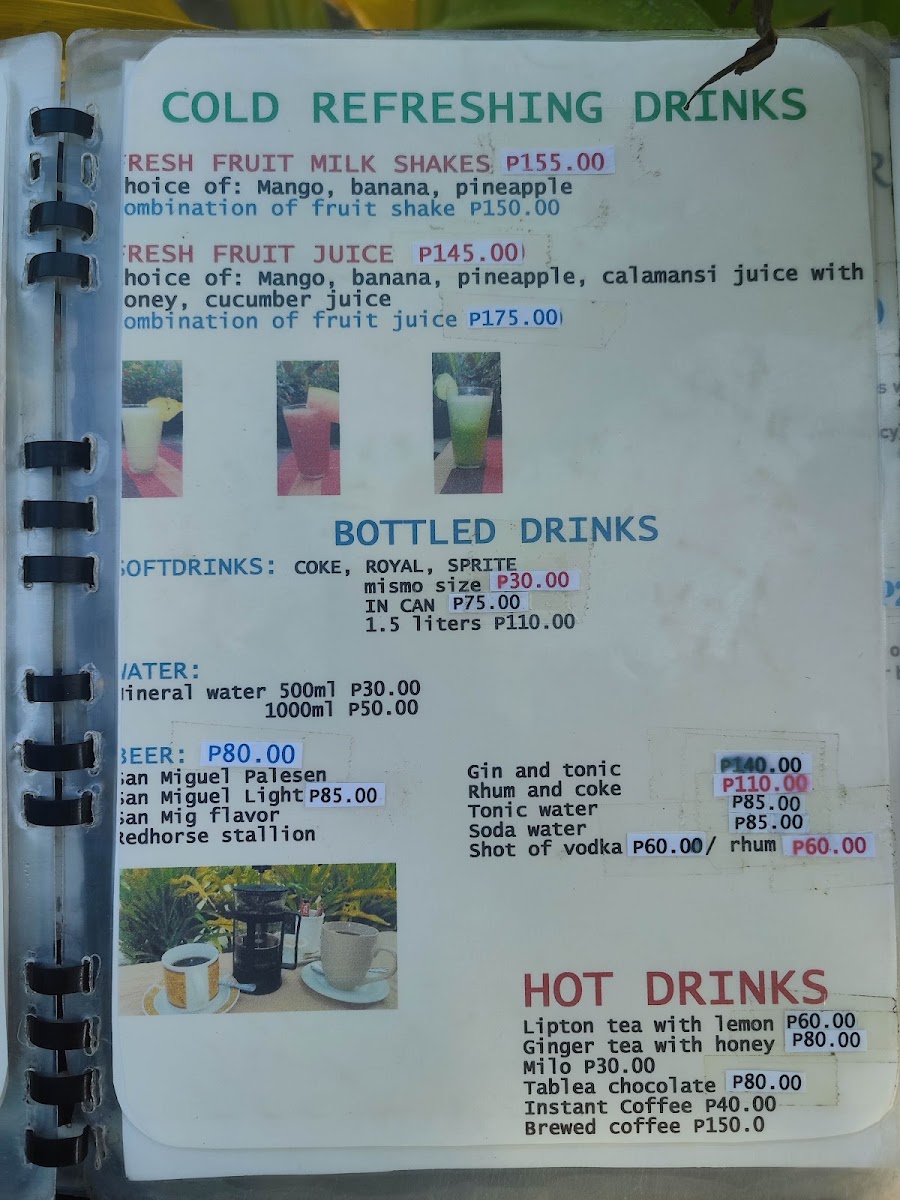 COLD REFRESHING DRINKS
FRESH FRUIT MILK SHAKES P155.00
hoice of: Mango, banana, pineapple
ombination of fruit shake P150.00
FRESH FRUIT JUICE P145.00
hoice of: Mango, banana, pineapple, calamansi juice with
oney, cucumber juice
ombination of fruit juice P175.00
BOTTLED DRINKS
SOFTDRINKS: COKE, ROYAL, SPRITE
mismo size P30.00
IN CAN P75.00
1.5 liters P110.00
WATER:
Mineral water 500ml P30.00
1000ml P50.00
BEER: P80.00
San Miguel Palesen
San Miguel Light P85.00
San Mig flavor
Redhorse stallion
Gin and tonic P140.00
Rhum and coke P110.00
Tonic water P85.00
Soda water P85.00
Shot of vodka P60.00/ rhum P60.00
HOT DRINKS
Lipton tea with lemon P60.00
Ginger tea with honey P80.00
Milo P30.00
Tablea chocolate P80.00
Instant Coffee P40.00
Brewed coffee P150.0